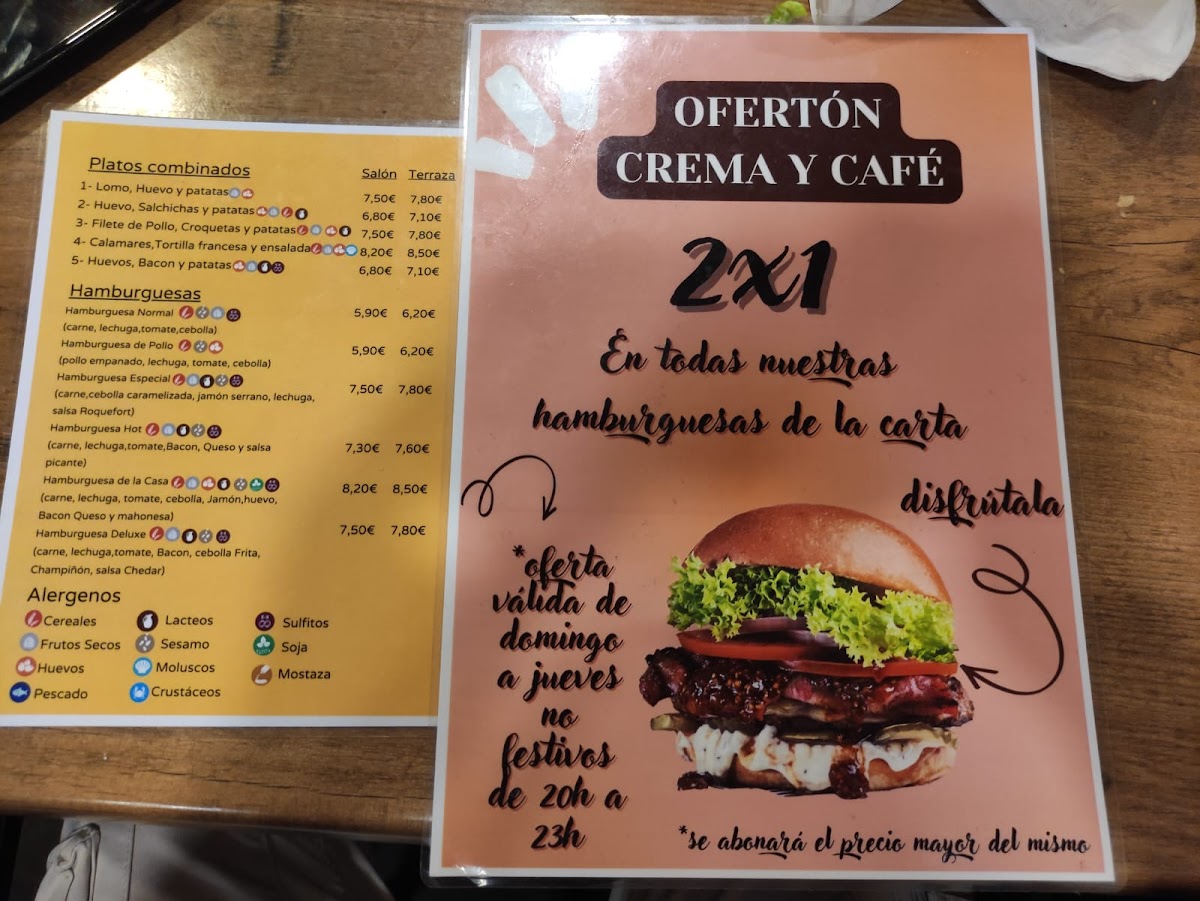 Platos combinados Salón Terraza
1- Lomo, Huevo y patatas 7,50€ 7,80€
2- Huevo, Salchichas y patatas 6,80€ 7,10€
3- Filete de Pollo, Croquetas y patatas 7,50€ 7,80€
4- Calamares,Tortilla francesa y ensalada 8,20€ 8,50€
5- Huevos, Bacon y patatas 6,80€ 7,10€
Hamburguesas
Hamburguesa Normal 5,90€ 6,20€
(carne, lechuga,tomate,cebolla)
Hamburguesa de Pollo 5,90€ 6,20€
(pollo empanado, lechuga, tomate, cebolla)
Hamburguesa Especial 7,50€ 7,80€
(carne,cebolla caramelizada, jamón serrano, lechuga,
salsa Roquefort)
Hamburguesa Hot
(carne, lechuga,tomate,Bacon, Queso y salsa 7,30€ 7,60€
picante)
Hamburguesa de la Casa 8,20€ 8,50€
(carne, lechuga, tomate, cebolla, Jamón,huevo,
Bacon Queso y mahonesa)
Hamburguesa Deluxe 7,50€ 7,80€
(carne, lechuga,tomate, Bacon, cebolla Frita,
Champiñón, salsa Chedar)
Alergenos
Cereales Lacteos Sulfitos
Frutos Secos Sesamo Soja
Huevos Moluscos Mostaza
Pescado Crustáceos
OFERTÓN
CREMA Y CAFÉ
2x1
En todas nuestras
hamburguesas de la carta
disfrútala
*oferta
válida de
domingo
a jueves
no
festivos
de 20h a
23h
*se abonará el precio mayor del mismo